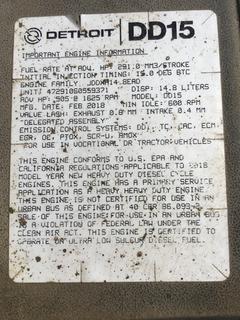 DETROIT DD15
IMPORTANT ENGINE INFORMATION
FUEL RATE AT ADV. HP: 291.0 MM3/STROKE
INITIAL INJECTION TIMING: 15.0 DEG BTC
ENGINE FAMILY: JDDXH14.8EAD
UNIT: 472910S0559371 DISP: 14.8 LITERS
ADV HP: 505 @ 1625 RPM MODEL: DD15
MFG DATE: FEB 2018 MIN IDLE: 600 RPM
VALVE LASH: EXHAUST 0.6 MM INTAKE 0.4 MM
*DELEGATED ASSEMBLY
EMISSION CONTROL SYSTEMS: DDI, TC, CAC, ECM,
EGR, OC, PTOX, SCR-U, AMOX
FOR USE IN VOCATIONAL OR TRACTOR VEHICLES
THIS ENGINE CONFORMS TO U.S. EPA AND
CALIFORNIA REGULATIONS APPLICABLE TO 2018
MODEL YEAR NEW HEAVY DUTY DIESEL CYCLE
ENGINES. THIS ENGINE HAS A PRIMARY SERVICE
APPLICATION AS A HEAVY HEAVY DUTY ENGINE.
THIS ENGINE IS NOT CERTIFIED FOR USE IN AN
URBAN BUS AS DEFINED AT 40 CFR 86.093-2.
SALE OF THIS ENGINE FOR USE IN AN URBAN BUS
IS A VIOLATION OF FEDERAL LAW UNDER THE
CLEAN AIR ACT. THIS ENGINE IS CERTIFIED TO
OPERATE ON ULTRA LOW SULFUR DIESEL FUEL.